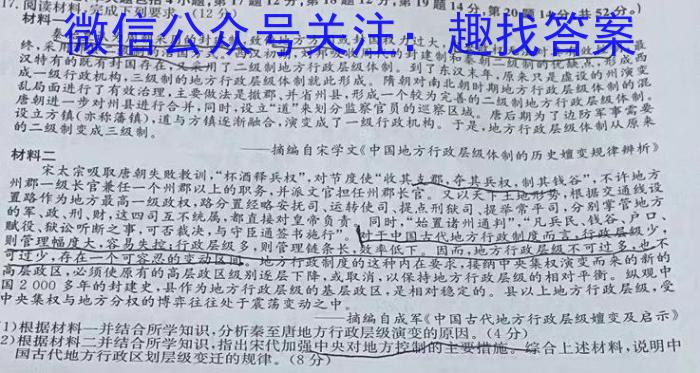 17.阅读材料,完成下列要求。(12分)
微信公众号关注:趣找答案
材料一
汉特有的既有封国存在,又采用了二级制地方行政层级体制。到了东汉末年,原来只是虚设的州演变
成一级行政机构,三级制的地方行政层级体制就此形成。隋朝对南北朝时期地方行政层级体制的混
乱局面进行了有效治理,主要做法是撤郡,并省州县,形成一个较为完善的二级制地方行政层级体制。
唐朝进一步对州县进行合并,同时,设立“道”来划分监察官员的巡察区域。唐后期为了边防军事需要
设立方镇(亦称藩镇),道与方镇逐渐融合,演变成了一级行政机构。于是,地方行政层级体制从原来
的二级制变成三级制。
——摘编自宋学文《中国地方行政层级体制的历史嬗变规律辨析》
材料二
宋太宗吸取唐朝失败教训,“杯酒释兵权”,对节度使“收其支郡,夺其兵权,制其钱谷”,不许地方
州郡一级长官兼任一个州郡以上的职务,并派文官担任州郡长官。又以天下土地形势,根据交通线设
置路作为地方最高一级政权,路分置经略安抚司、运转使司、提点刑狱司、提举常平司,分别掌管地方
的军、政、刑、财,这四司互不统属,都直接对皇帝负责。同时,“始置诸州通判”,“凡兵民、钱谷、户口、
赋役、狱讼听断之事,可否裁决,与守臣通签书施行”。对于中国古代地方行政制度而言,行政层级少,
则管理幅度大,容易失控;行政层级多,则管理链条长,效率低下。因而,地方行政层级不可过多,也不
可过少,存在一个可容忍的变动区间。地方行政制度的这种内在要求,接纳中央集权演变而来的新的
高层政区,必须使原有的高层政区级别逐层下降,或取消,以保持地方行政层级的相对平衡。纵观中
国2000多年的封建史,县作为地方行政层级的基层政区,是相对稳定的。县以上地方行政层级,受
中央集权与地方分权的博弈往往处于震荡变动之中。
——摘编自成军《中国古代地方行政层级嬗变及启示》
(1)根据材料一并结合所学知识,分析秦至唐地方行政层级演变的原因。(4分)
(2)根据材料二并结合所学知识,指出宋代加强中央对地方控制的主要措施。综合上述材料,说明中
国古代地方行政区划层级变迁的规律。(8分)